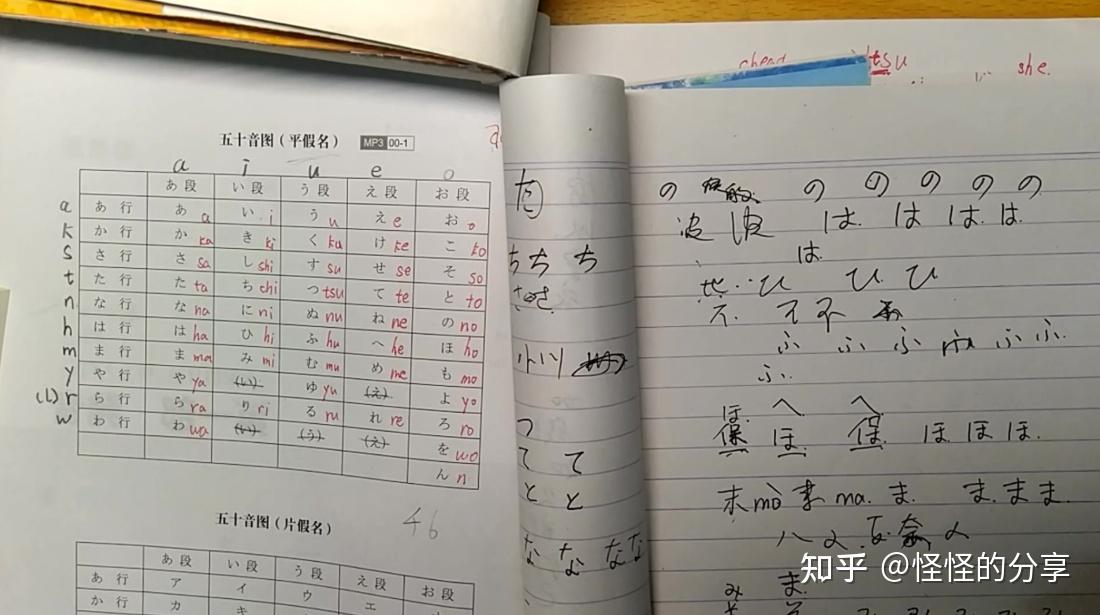 tsu
she.
五十音图（平假名） MP3 00-1
a i u e o
あ段 い段 う段 え段 お段
a あ行 あ a い i う u え e お o
k か行 か ka き ki く ku け ke こ ko
s さ行 さ sa し shi す su せ se そ so
t た行 た ta ち chi つ tsu て te と to
n な行 な na に ni ぬ nu ね ne の no
h は行 は ha ひ hi ふ hu へ he ほ ho
m ま行 ま ma み mi む mu め me も mo
y や行 や ya (い) ゆ yu (え) よ yo
(l) r ら行 ら ra り ri る ru れ re ろ ro
w わ行 わ wa (い) (う) (え) を wo
ん n
五十音图（片假名） 46
あ段 い段 う段 え段 お段
あ行 ア イ ウ エ
か行 カ キ
ち ち ち
つ
て て
と と
な な な な
の の の の の の
波 波 は は は は
は
世 ひ ひ ひ
不 不
ふ ふ ふ ふ ふ
ふ
ほ へ へ
保 ほ 保 ほ ほ ほ
末 mò ma. ま ま ま ま
み ま
知乎 @怪怪的分享